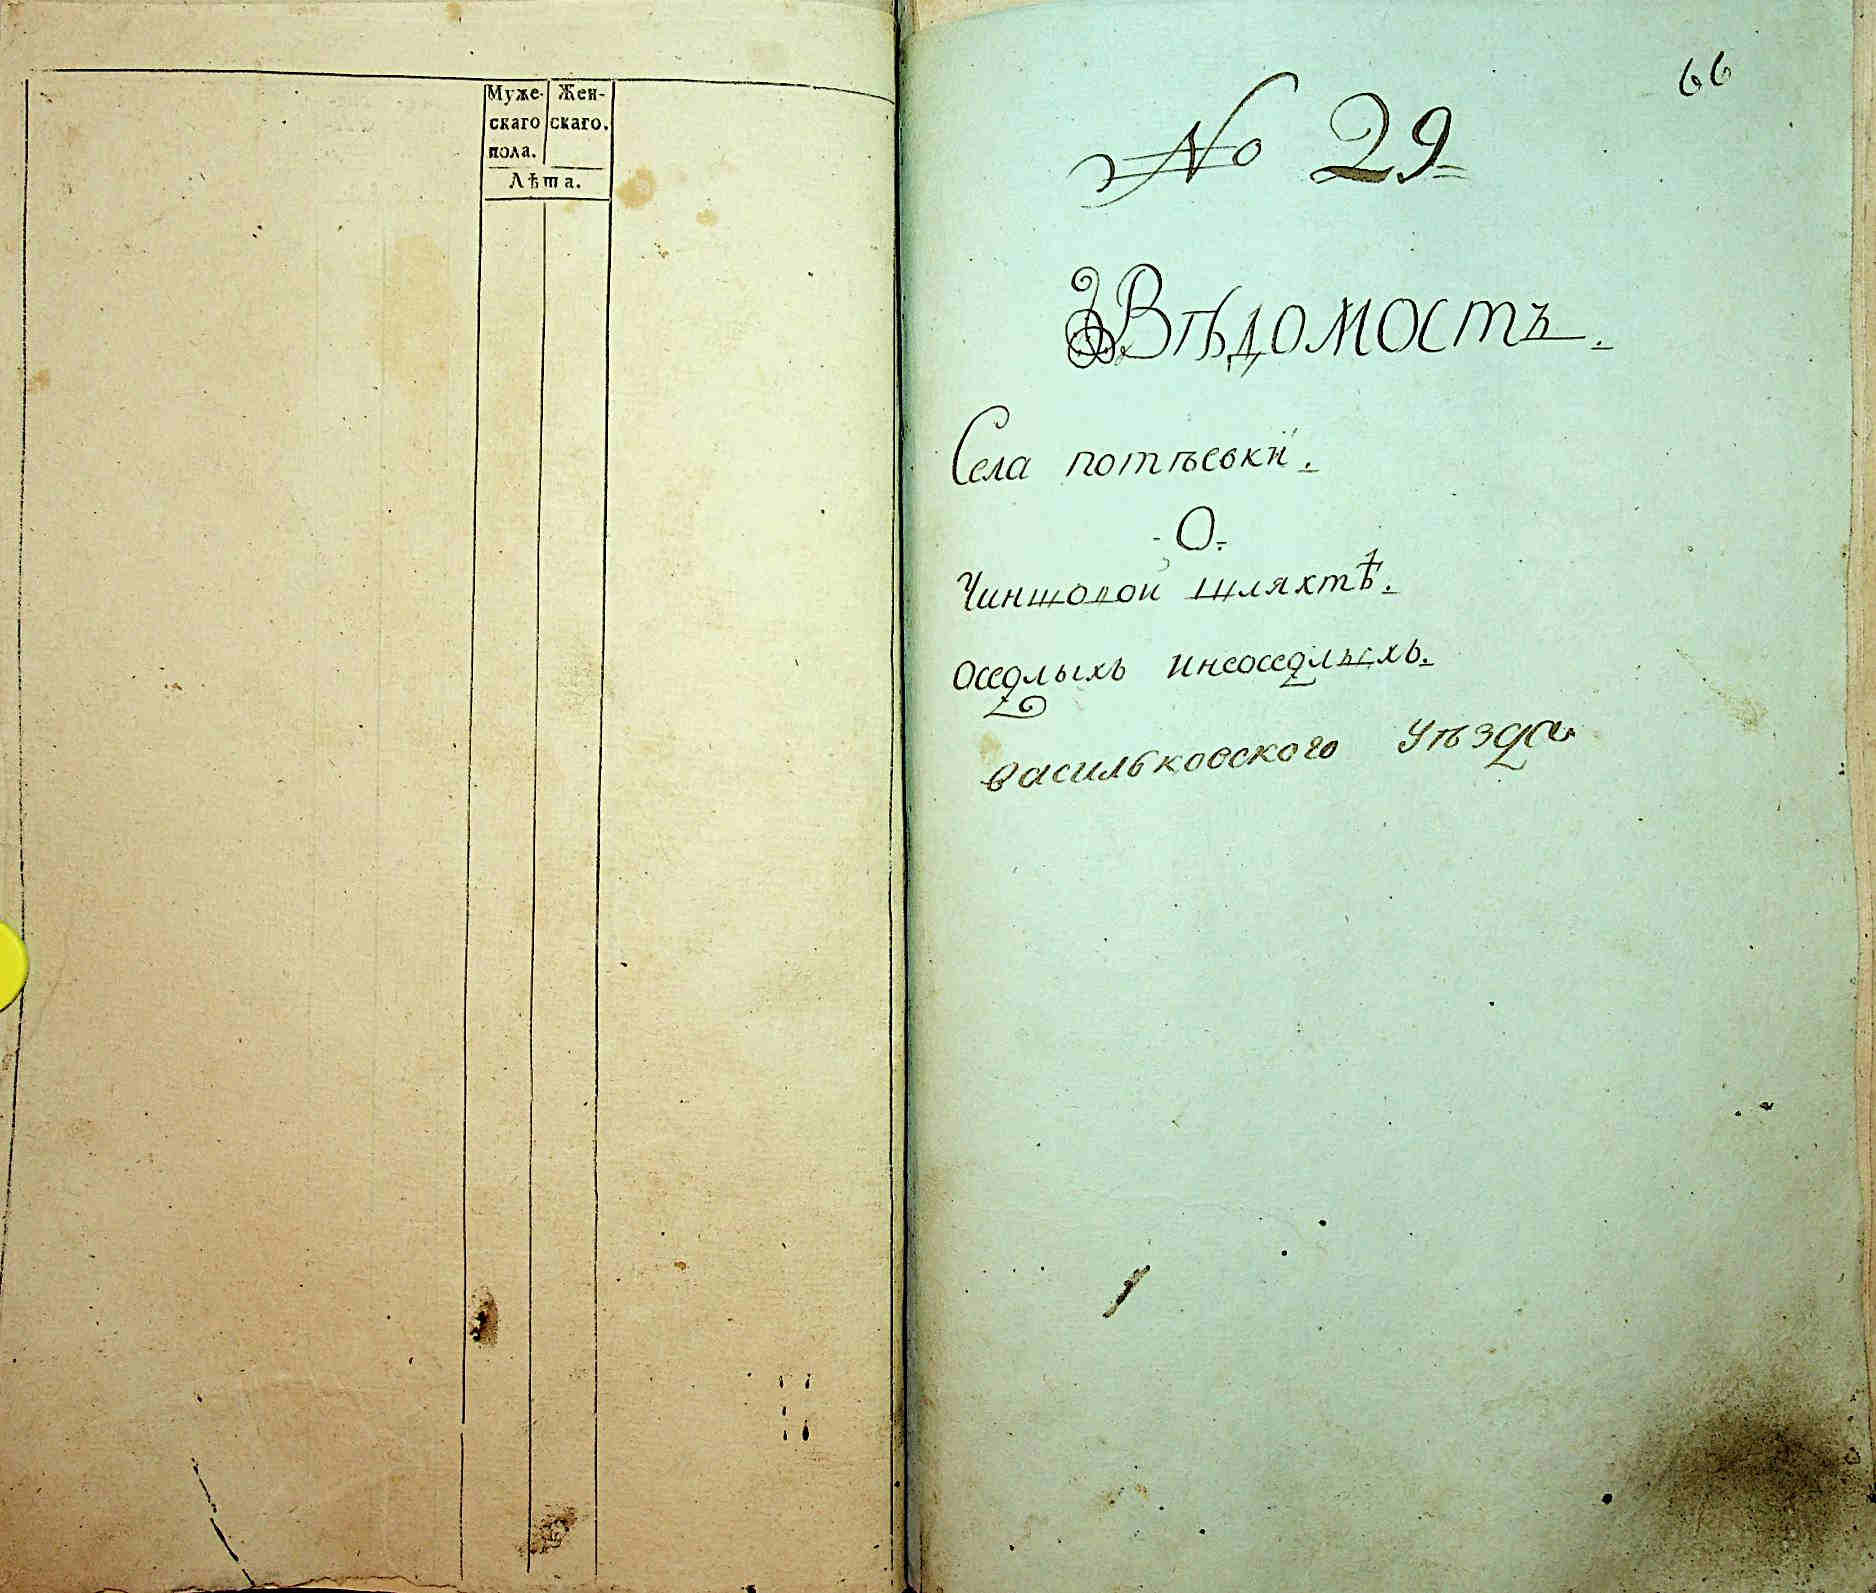 Муже- Жен-
скаго скаго.
пола.
Лѣта.
66
No 29
Вѣдомость.
Села потѣевки.
О.
Чиншовой шляхтѣ.
оседлыхъ инеоседлыхъ.
васильковского уѣзда